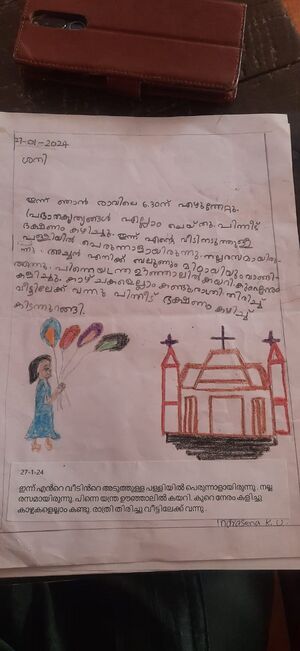 27-01-2024
ശനി
ഇന്ന് ഞാൻ രാവിലെ 6.30ന് എഴുന്നേറ്റു.
പ്രഭാതകൃത്യങ്ങൾ എല്ലാം ചെയ്തു. പിന്നീട്
ഭക്ഷണം കഴിച്ചു. ഇന്ന് എന്റെ വീട്ടിനടുത്തുള്ള
പള്ളിയിൽ പെരുന്നാളായിരുന്നു. നല്ലരസമായിരു
ന്നു. അച്ഛൻ എനിക്ക് ബലൂണും മിഠായിയും വാങ്ങി
തന്നു. പിന്നെ യന്ത്ര ഊഞ്ഞാലിൽ കയറി. കുറേനേരം
കളിച്ചു. കാഴ്ചകളെല്ലാം കണ്ടു. രാത്രി തിരിച്ച്
വീട്ടിലേക്ക് വന്നു പിന്നീട് ഭക്ഷണം കഴിച്ച്
കിടന്നുറങ്ങി.
27-1-24
ഇന്ന് എൻറെ വീടിൻറെ അടുത്തുള്ള പള്ളിയിൽ പെരുന്നാളായിരുന്നു. നല്ല
രസമായിരുന്നു. പിന്നെ യന്ത്ര ഊഞ്ഞാലിൽ കയറി. കുറെ നേരം കളിച്ചു
കാഴ്ചകളെല്ലാം കണ്ടു. രാത്രി തിരിച്ചു വീട്ടിലേക്ക് വന്നു.
Indhyasena K. U